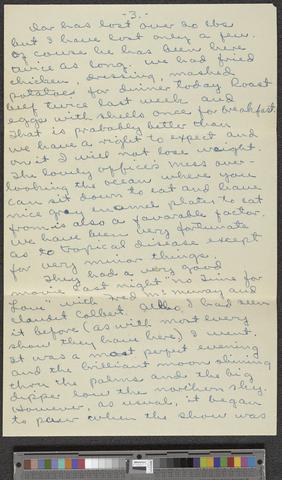 -3.-
Dar has lost over 20 lbs
but I have lost only a few.
Of course he has been here
twice as long. We had fried
chicken, dressing, mashed
potatoes for dinner today. Roast
beef twice last week and
eggs with shells once for breakfast.
That is probably better than
we have a right to expect and
on it I will not lose weight.
The lovely officer's mess over-
looking the ocean where you
can sit down to eat and have
nice gray enamel plates to eat
from is also a favorable factor.
We have been very fortunate
as to tropical disease except
for very minor things.
They had a very good
last night "No Time for
Love" with Fred McMurray and
Claudet Colbert. Altho I had seen
it before (as with most every
show they have here) I went.
It was a most perfect evening
and the brilliant moon shining
thru the palms and the big
dipper low the northern sky.
However, as usual, it began
to pour when the show was